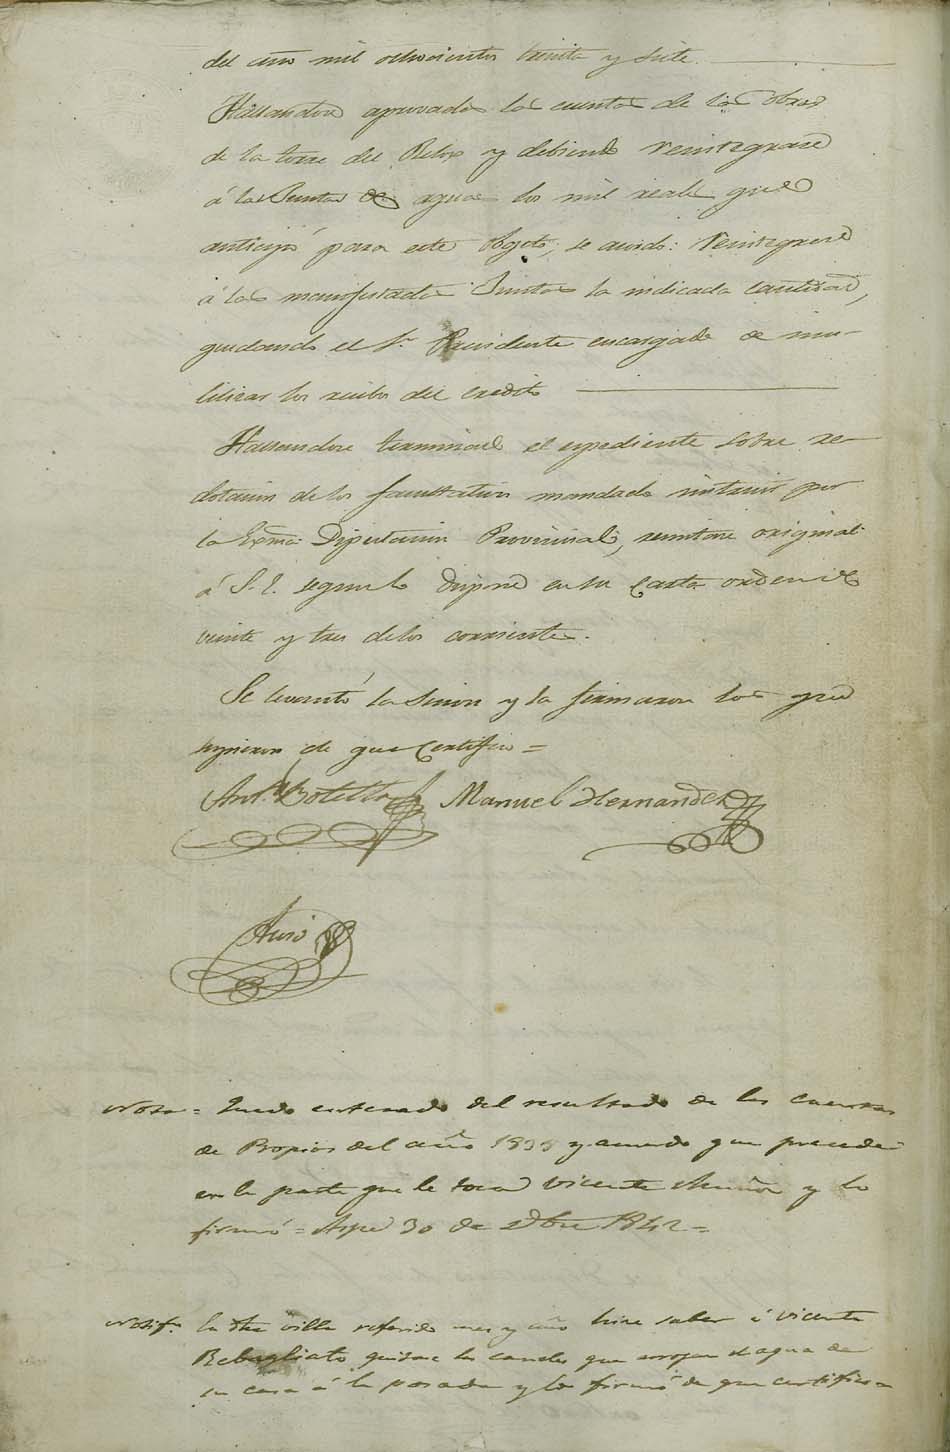 del año mil ochocientos treinta y siete.
Hallandose aprovadas las cuentas de las obras
de la torre del Relox y debiendo reintegrarse
á la Junta de aguas los mil reales que
anticipó para este objeto, se acordó: Reintegrese
á la manifestada Junta la indicada cantidad,
quedando el Sr. Presidente encargado de inu-
tilizar los recibos del credito
Hallandose terminado el expediente sobre re-
dotacion de los facultativos mandado instruir por
la Exma. Diputacion Provincial, remitase original
á S. E. segun lo dispone en su Carta orden de
veinte y tres de los corrientes.
Se levantó la sesion y la firmaron los que
supieron de que Certifico =
Anto. Botella Manuel Hernandez
Nota = Quedo enterado del resultado de las cuentas
de Propios del año y acuerdo que precede
en la parte que le toca Vicente y lo
firmó = Aspe 30 de 1842 =
Notifn. En dha villa referido mes y año hice saber á Vicente
Rebagliato quitase las canales que arrojan el agua de
su casa á la posada y lo firmó de que certifico =